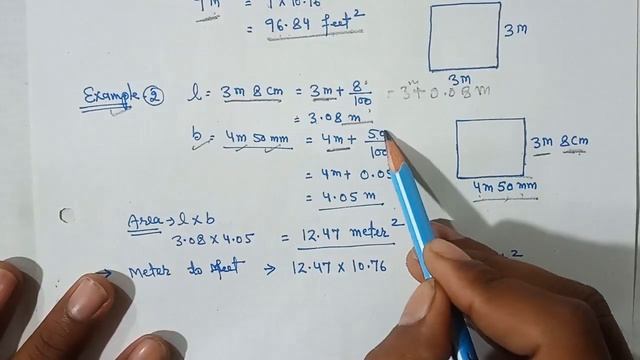 = 96.84 feet²
3m
3m
Example ② l = 3m 8cm = 3m + 8/100 = 3m + 0.08m
= 3.08 m
b = 4m 50 mm = 4m +
= 4m + 0.05
= 4.05 m
3m 8cm
4m 50 mm
Area → l × b
3.08 × 4.05 = 12.47 meter²
→ meter to feet → 12.47 × 10.76